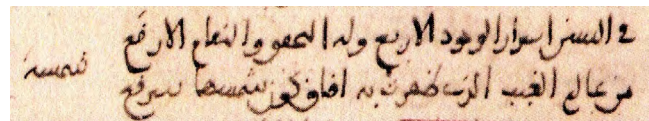 في الستر اسرار الوجود الاربع وله التحقق والمقام الارفع
من عالم الغيب الذي ظهرت به افاق كون شمسها تترفع
شمسه